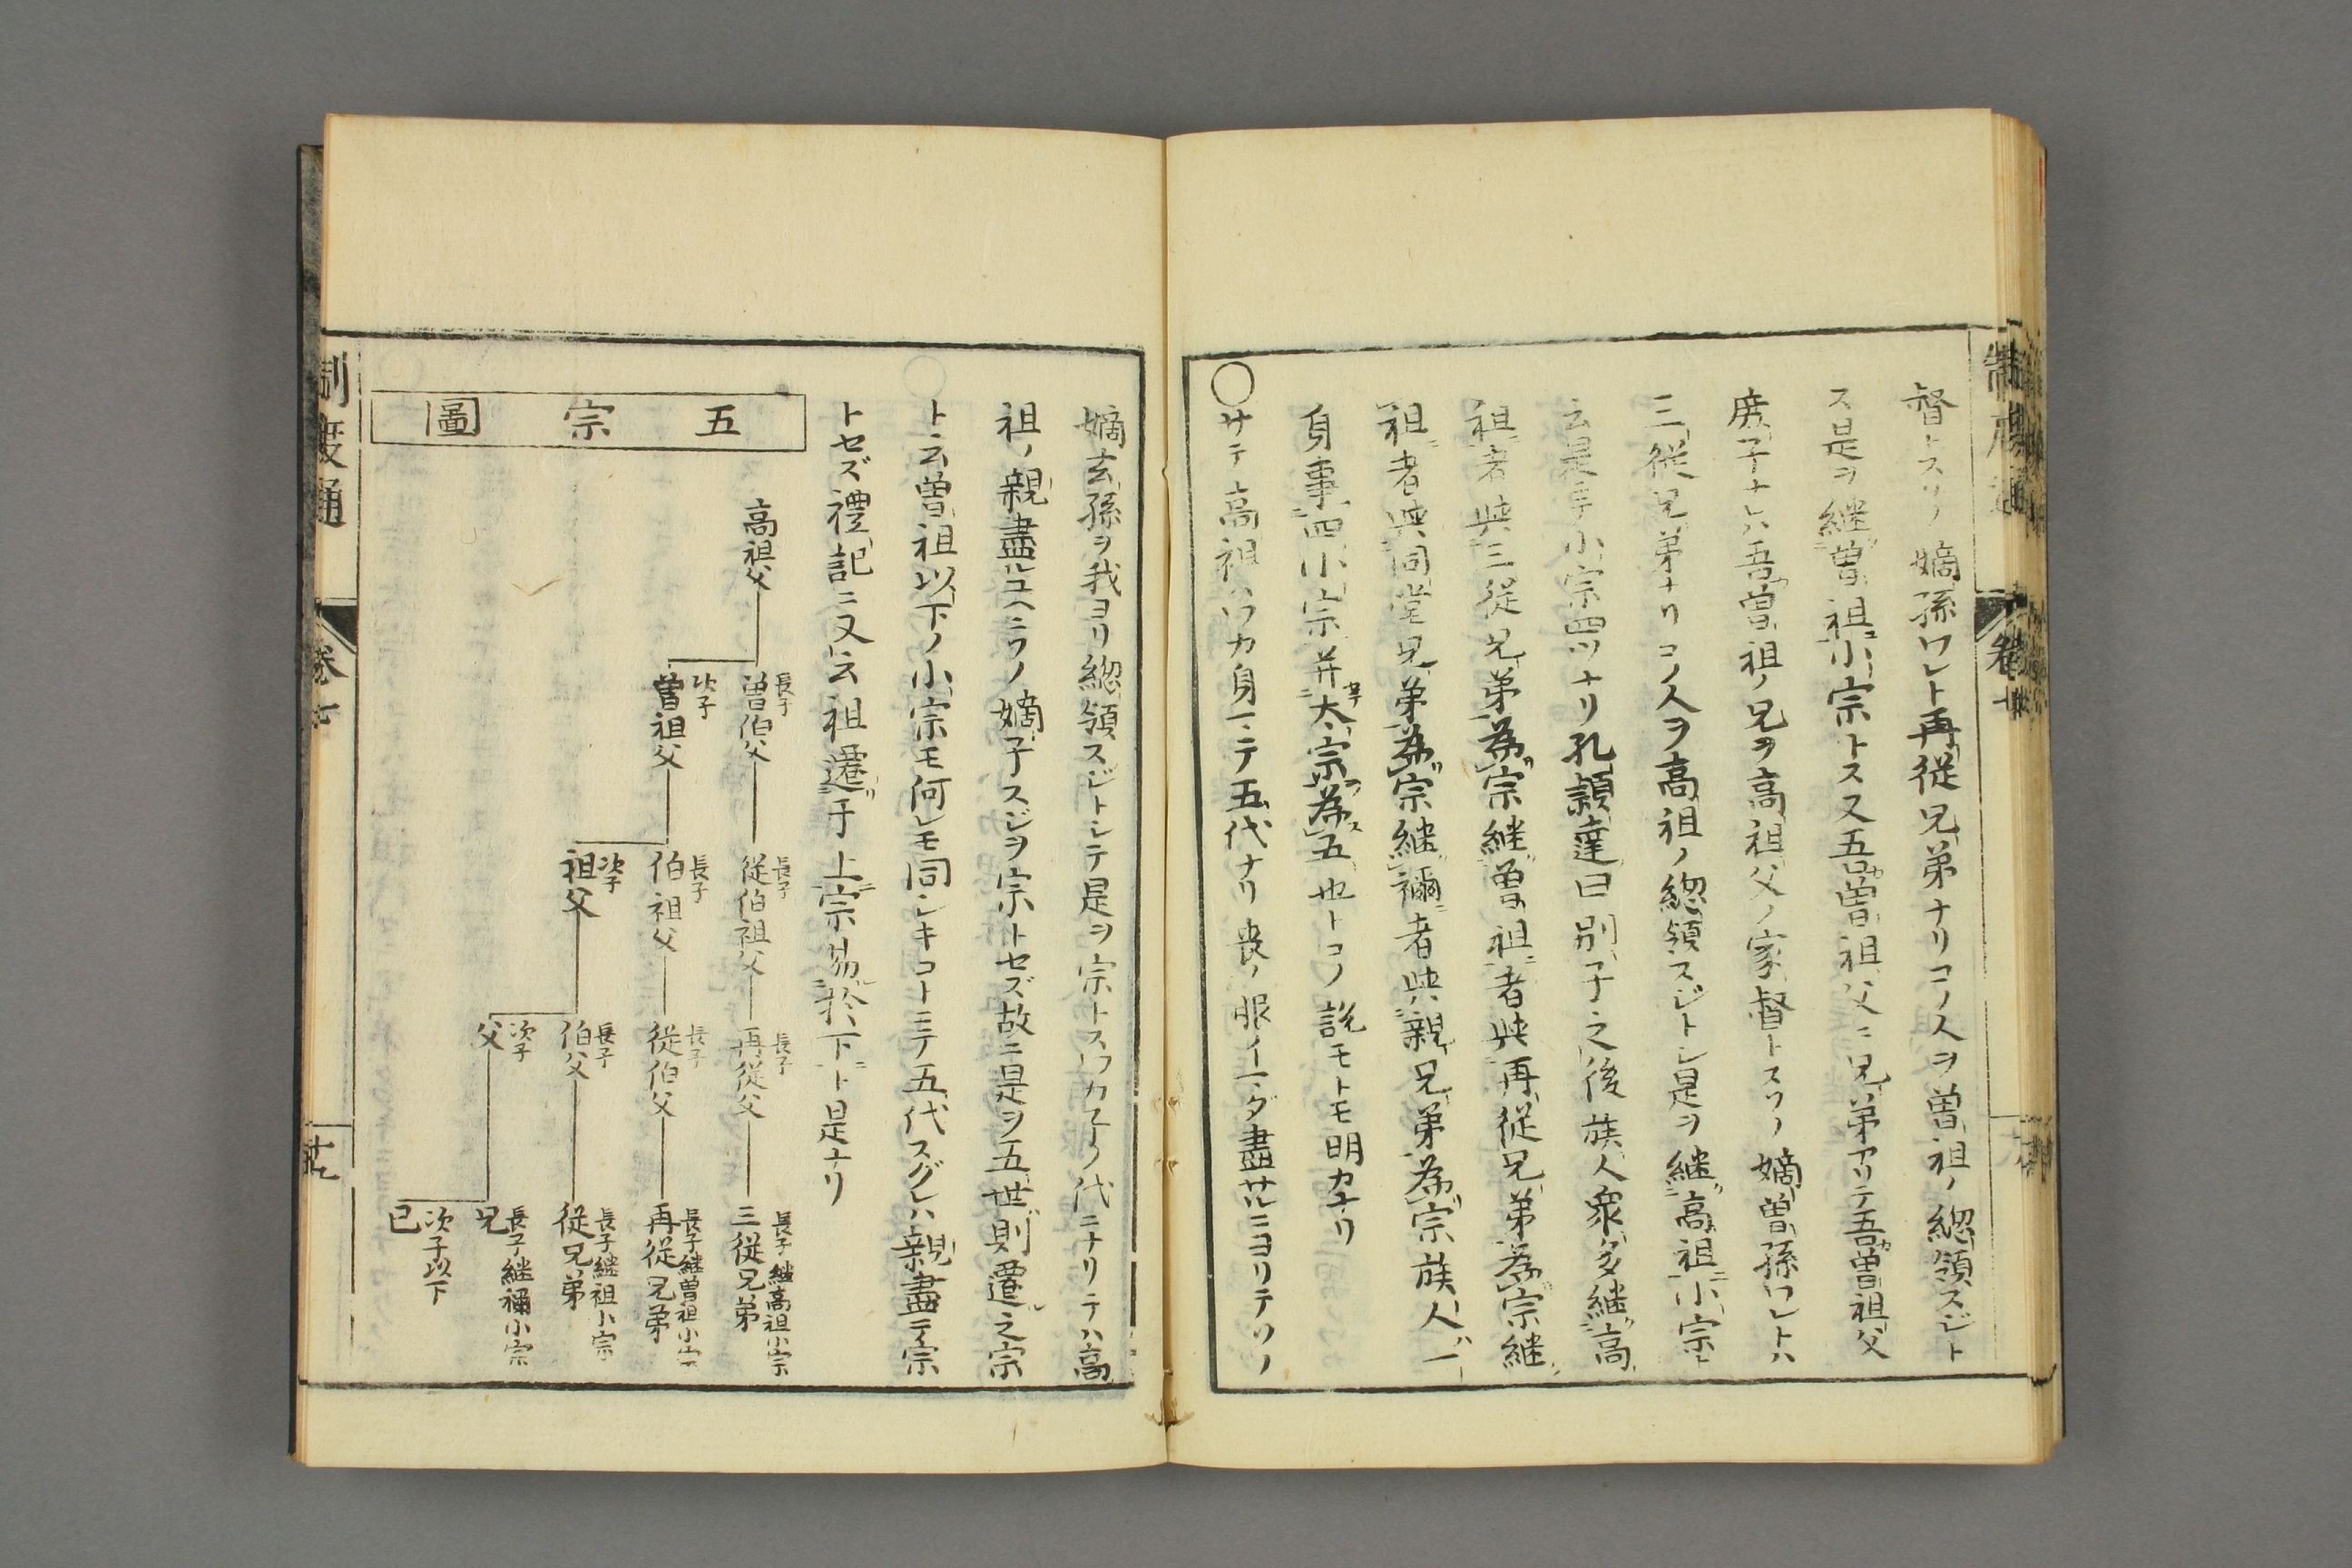 督トスソノ嫡孫ワレト再従兄弟ナリコノ人ヲ曽祖ノ総領スジト
ス是ヲ継曽祖小宗トス又吾曽祖父ニ兄弟アリテ吾曽祖父
庶子ナレハ吾曽祖ノ兄ヲ高祖父ノ家督トスソノ嫡曽孫ワレトハ
三従兄弟ナリコノ人ヲ高祖ノ総領スジトシ是ヲ継高祖小宗ト
云是手小宗四ツナリ孔頴達曰別子之後族人衆多継高
祖者與三従兄弟為宗継曽祖者與再従兄弟為宗継
祖者與同堂兄弟為宗継禰者與親兄弟為宗族人一
身事四小宗并大宗為五也トコノ説モトモ明カナリ
○サテ高祖ハワカ身マテ五代ナリ喪ノ服イマダ盡サルニヨリテソノ
嫡玄孫ヲ我ヨリ総領スジトシテ是ヲ宗トスワカ子ノ代ニナリテハ高
祖ノ親盡ルユヘニソノ嫡子スジヲ宗トセズ故ニ是ヲ五世則遷之宗
ト云曽祖以下ノ小宗モ何レモ同シキコトニテ五代スグレハ親盡テ宗
トセズ禮記ニ又云祖遷于上宗易於下ト是ナリ
五宗圖
高祖父
長子 曽伯父
長子 従伯祖父
長子 再従父
長子継高祖小宗 三従兄弟
次子 曽祖父
長子 伯祖父
長子 従伯父
長子継曽祖小宗 再従兄弟
次子 祖父
長子 伯父
長子継祖小宗 従兄弟
次子 父
長子継禰小宗 兄
次子以下 己
制度通
巻七
廿九